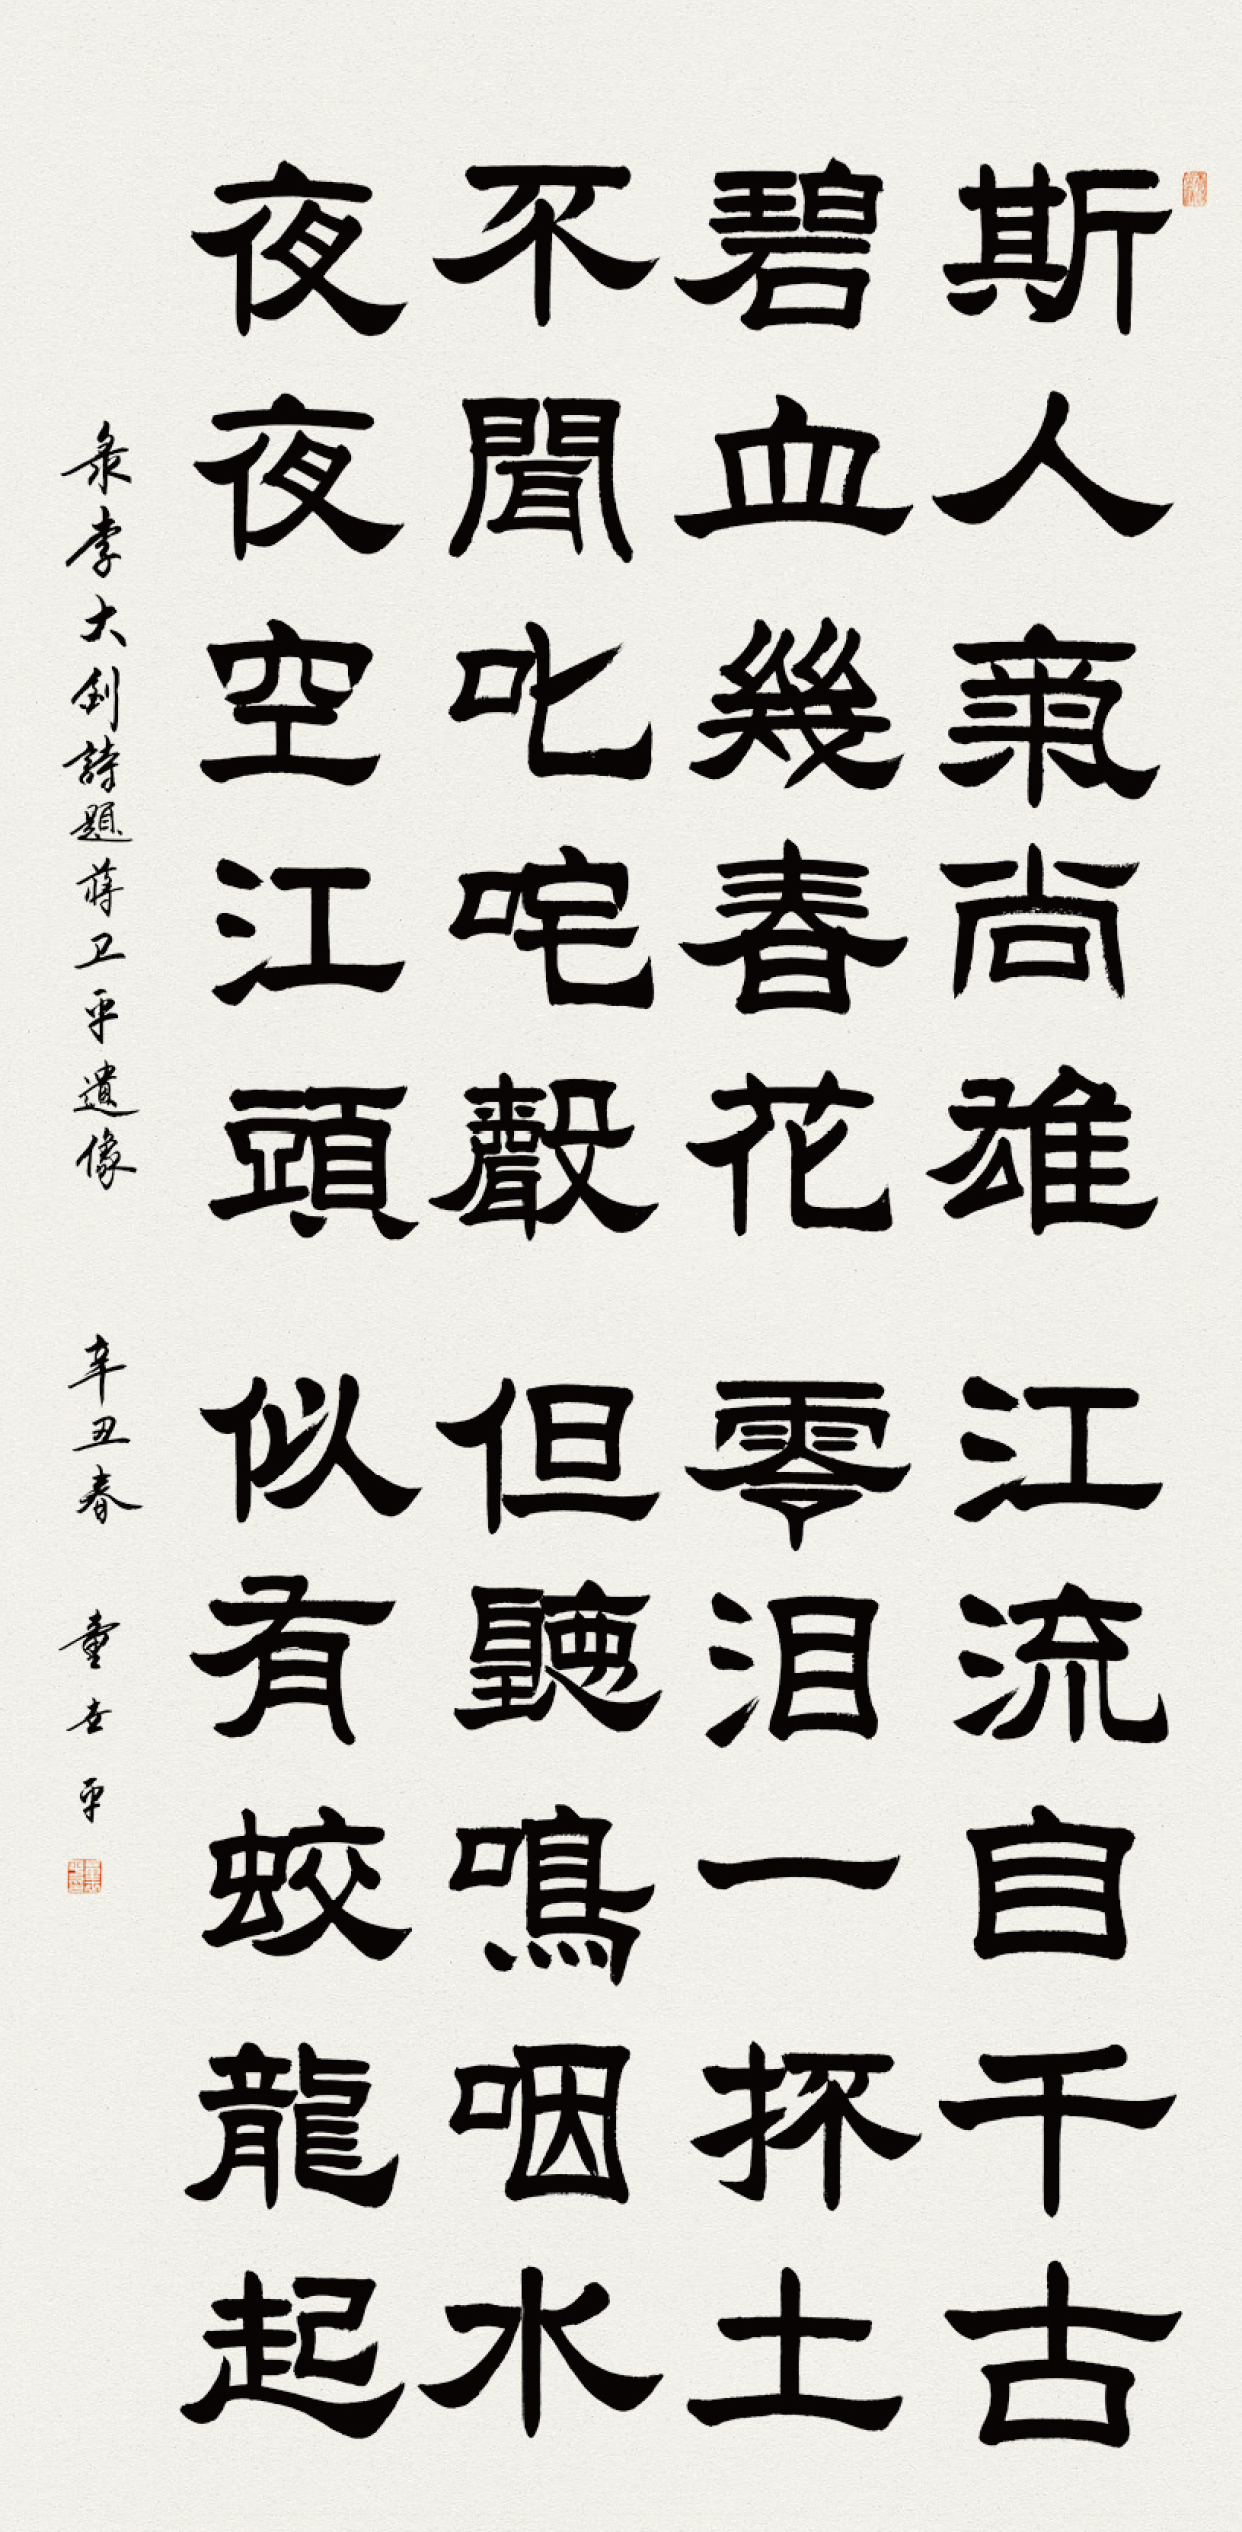 斯人氣尚雄江流自千古
碧血幾春花零泪一抔土
不聞叱咤聲但聽鳴咽水
夜夜空江頭似有蛟龍起
录李大釗詩題蔣卫平遺像 辛丑春 童世平